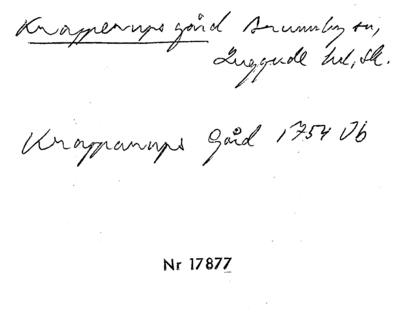 Krapperups gård Brunnby sn,
Luggude hd, Sk.
Krapparups Gård 1754 Jb
Nr 17877